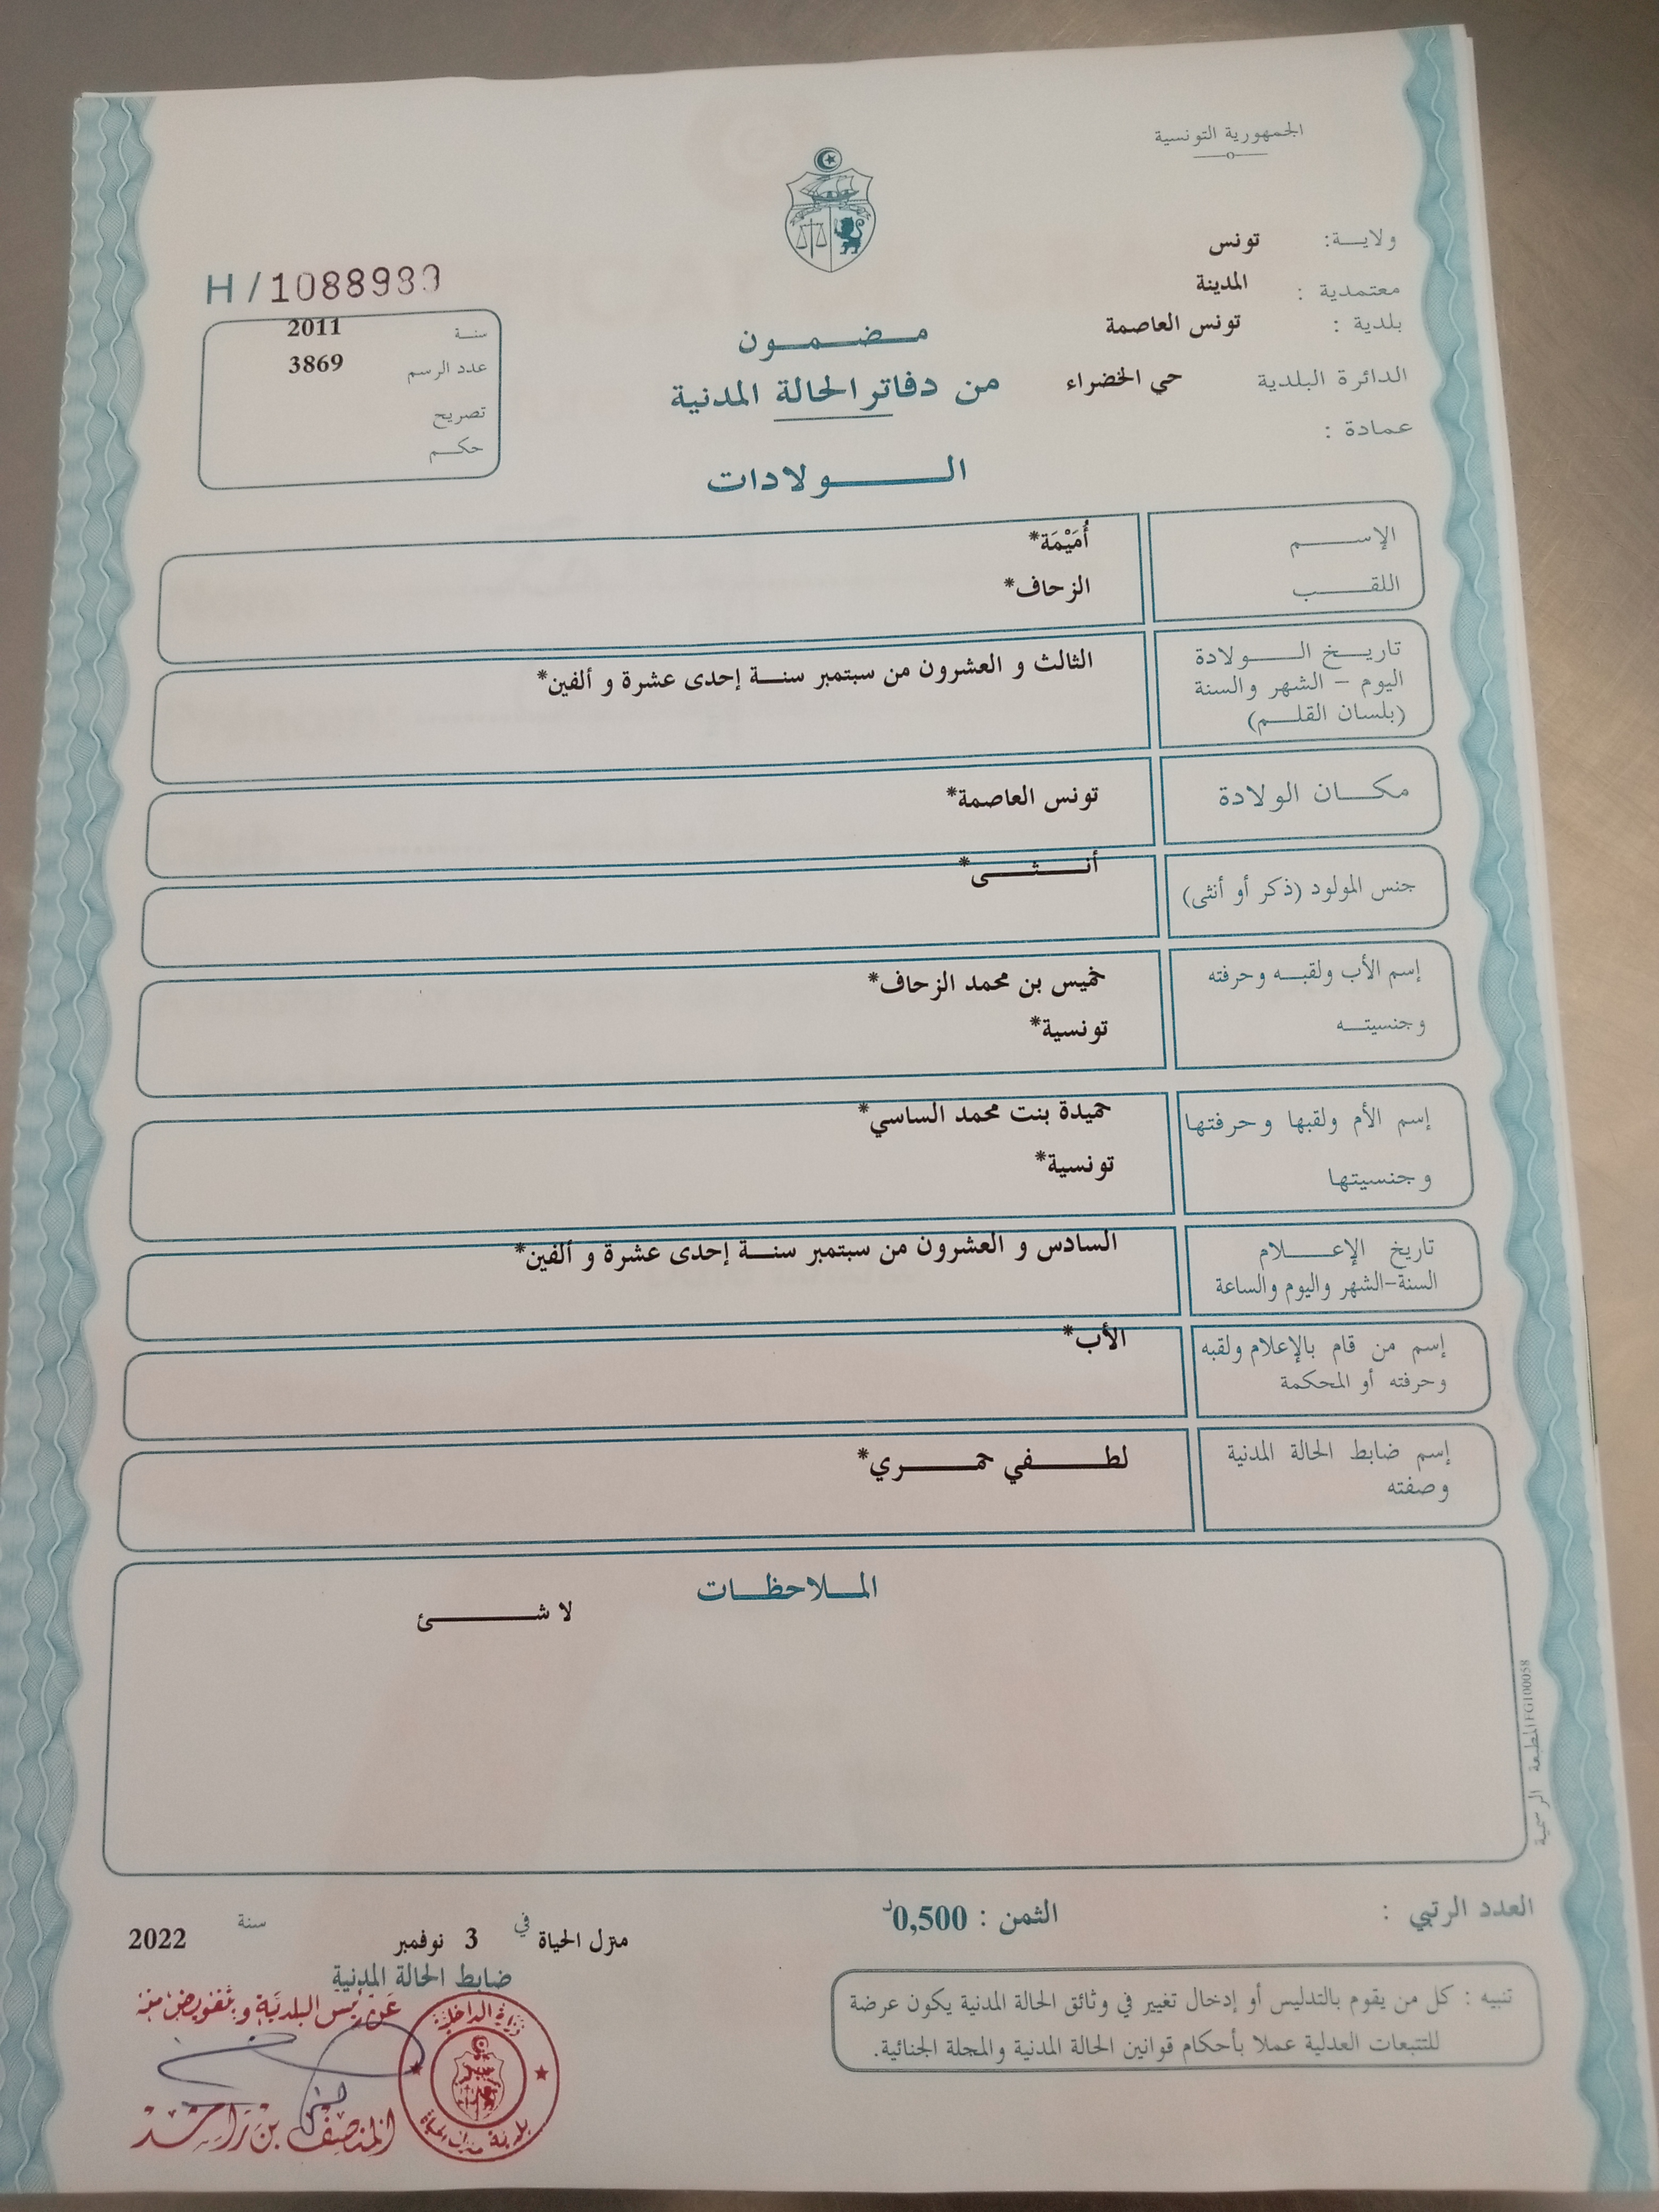 الجمهورية التونسية
ولايـــة: تونس
معتمدية : المدينة
بلدية : تونس العاصمة
الدائرة البلدية حي الخضراء
عمادة :
H / 1088983
سنـــة 2011
عدد الرسم 3869
تصريح
حكـــم
مـــضـــمـــون
من دفاتر الحالة المدنية
الـــــولادات
الإســـــم أُمَيْمَة*
اللقـــــب الزحاف*
تاريـــخ الـــــولادة الثالث و العشرون من سبتمبر سنـــة إحدى عشرة و ألفين*
اليوم – الشهر والسنة
(بلسان القلـــم)
مكـــان الولادة تونس العاصمة*
جنس المولود (ذكر أو أنثى) أنـــثـــى*
إسم الأب ولقبـــه وحرفته خميس بن محمد الزحاف*
وجنسيتـــه تونسية*
إسم الأم ولقبها وحرفتها حميدة بنت محمد الساسي*
وجنسيتها تونسية*
تاريخ الإعـــــلام السادس و العشرون من سبتمبر سنـــة إحدى عشرة و ألفين*
السنة-الشهر واليوم والساعة
إسم من قام بالإعلام ولقبه الأب*
وحرفته أو المحكمة
إسم ضابط الحالة المدنية لطـــــفي حمـــــري*
وصفته
المـــلاحظـــات
لا شـــــئ
المطبعة الرسمية
العدد الرتبي :
الثمن : 0,500د
منزل الحياة في 3 نوفمبر سنة 2022
ضابط الحالة المدنية
عن رئيس البلدية وبتفويض منه
المنصف بن راشد
وزارة الداخلية
بلدية منزل الحياة
تنبيه : كل من يقوم بالتدليس أو إدخال تغيير في وثائق الحالة المدنية يكون عرضة
للتتبعات العدلية عملا بأحكام قوانين الحالة المدنية والمجلة الجنائية.